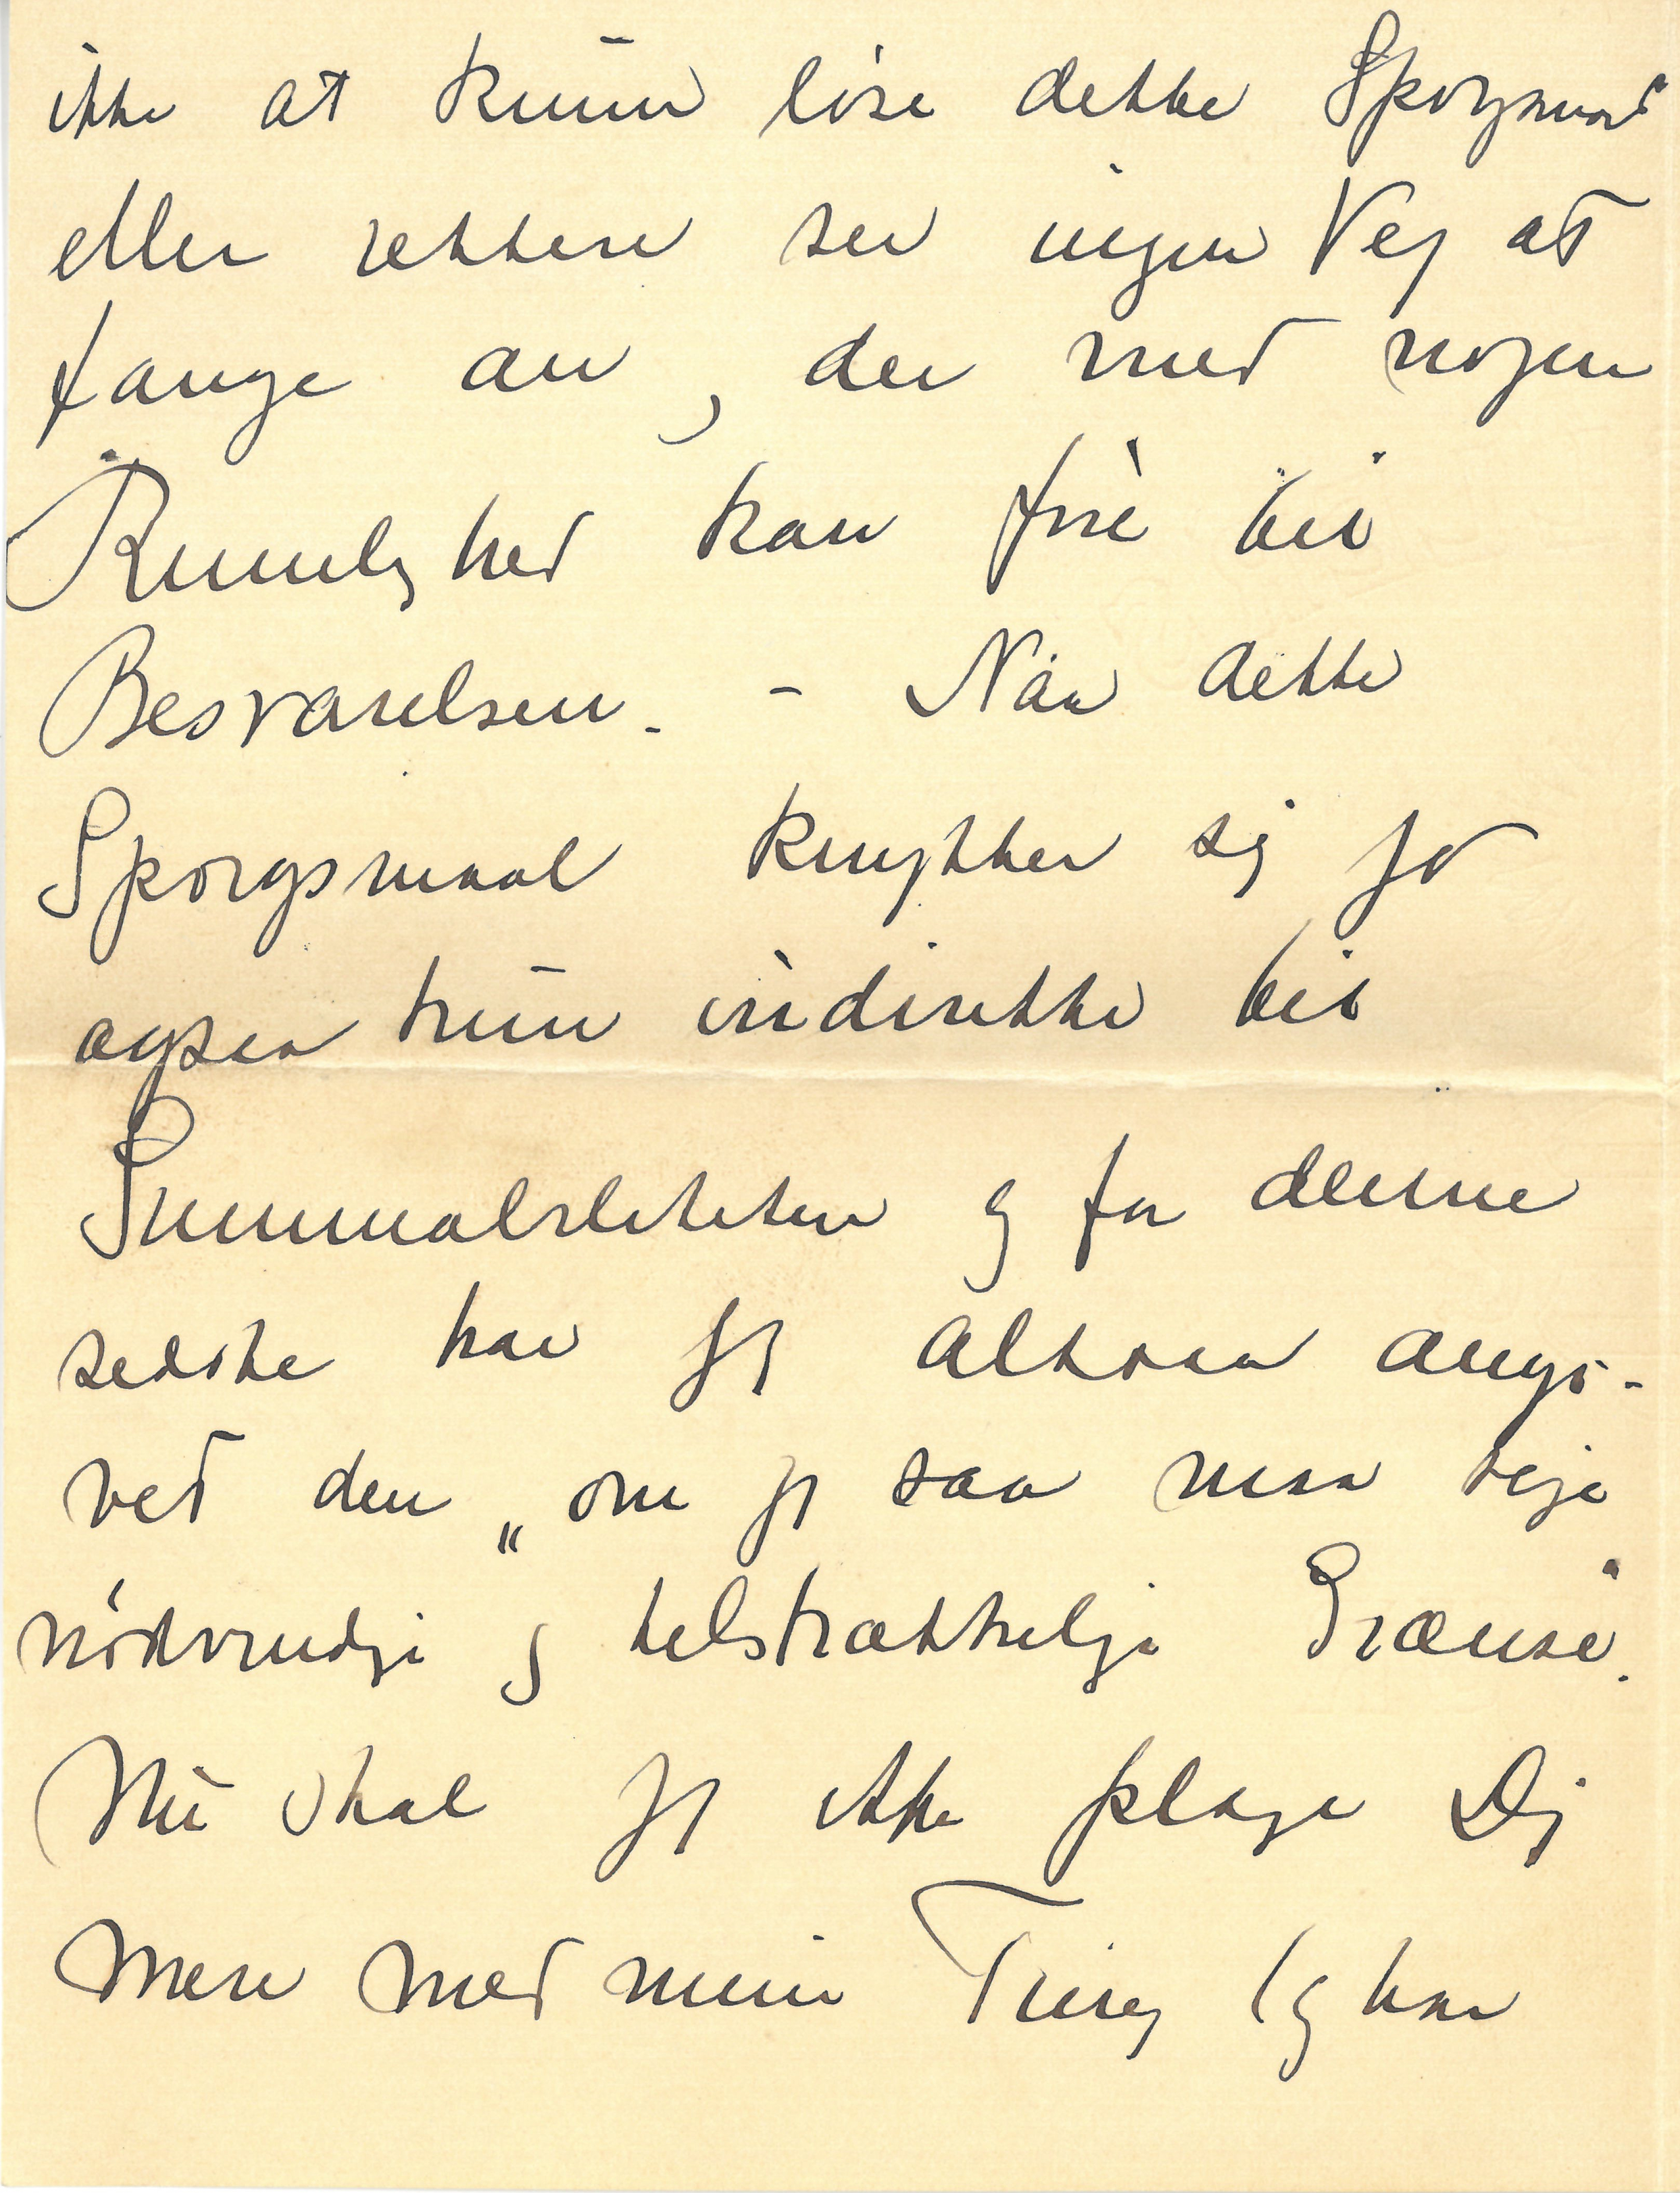 ikke at kunne löse dette Spørgsmaal
eller rettere ser ingen Vej at
fange an, der med nogen
Rimelighed kan före til
Besvarelsen. - Naar dette
Spörgsmaal knytter sig jo
ogsaa kun indirekte til
Summabiliteten og for denne
sidste har jeg altsaa angi-
vet den „om jeg saa maa sige
nödvendige og tilstrækkelige Grænse.
Nu skal jeg ikke plage Dig
mere med mine Ting (og har